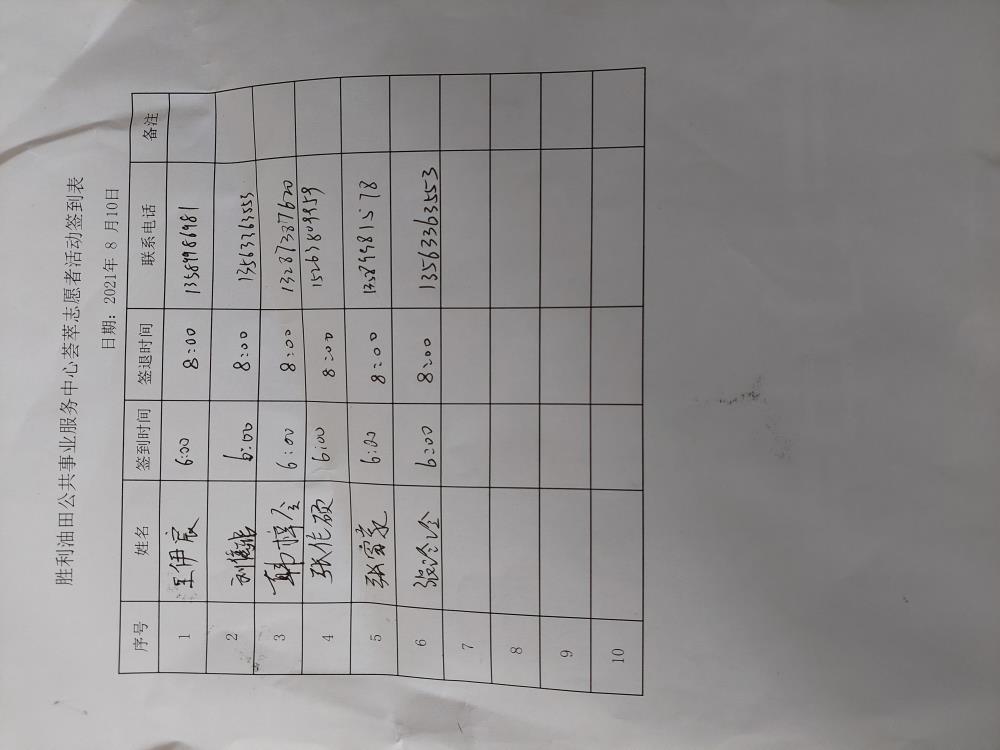 胜利油田公共事业服务中心荟萃志愿者活动签到表
日期：2021年 8 月10日
序号 姓名 签到时间 签退时间 联系电话 备注
1 王伊宸 6:00 8:00 13589986981
2 6:00 8:00 13563363553
3 韩梓全 6:00 8:00 13287387620
4 张作硕 6:00 8:00 15263809959
5 张家豪 6:00 8:00 13589981578
6 张冷冷 6:00 8:00 13563363553
7
8
9
10